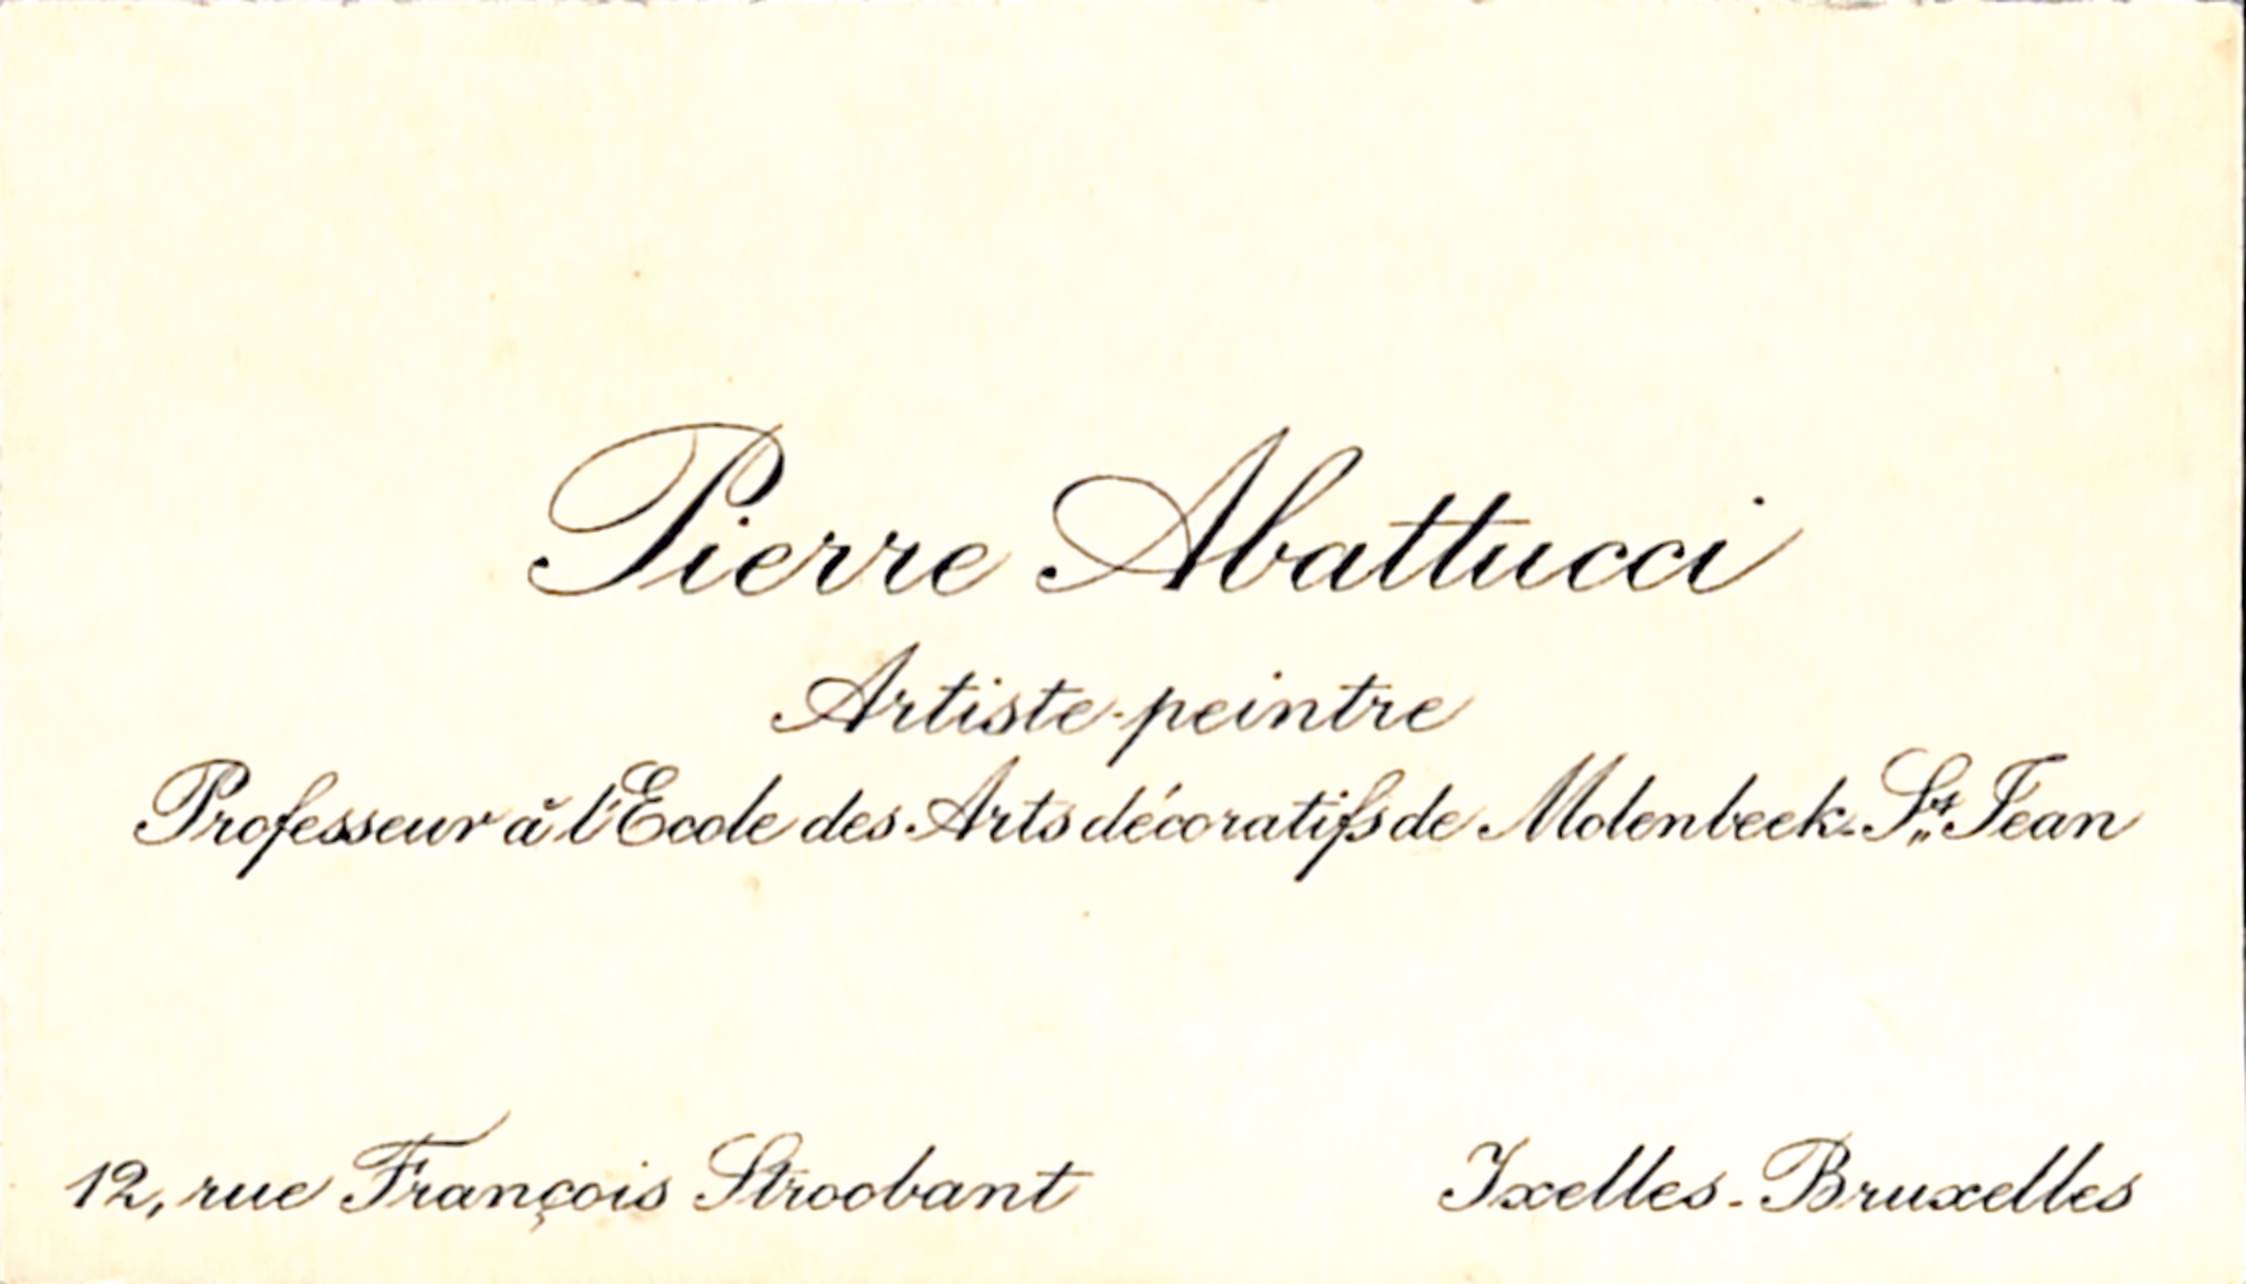 Pierre Abattucci
Artiste-peintre
Professeur à l'Ecole des Arts décoratifs de Molenbeek-St Jean
12, rue François Stroobant
Ixelles-Bruxelles